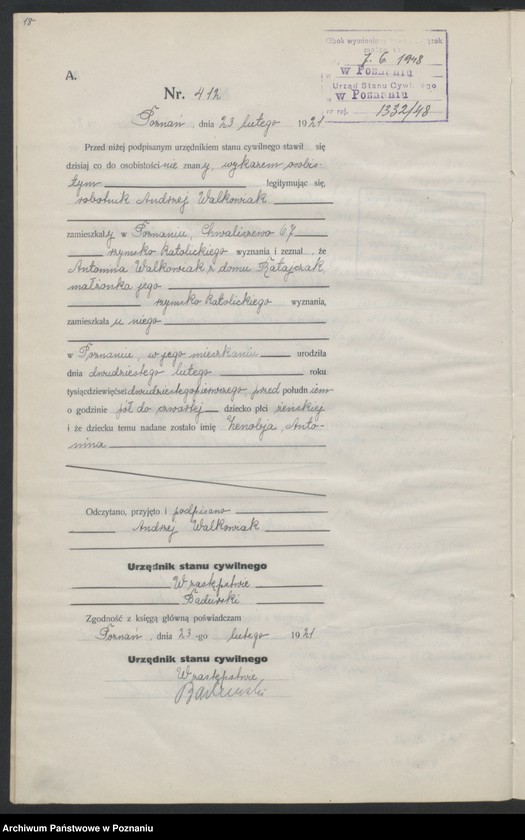 18
7. 6 1948
w Poznaniu
Urząd Stanu Cywilnego
w Poznaniu
nr rej. 1332/48
A.
Nr. 412
Poznań, dnia 23 lutego 1921
Przed niżej podpisanym urzędnikiem stanu cywilnego stawił się
dzisiaj co do osobistości nie znany, wykazem osobis-
tym legitymując się,
robotnik Andrzej Walkowiak
zamieszkały w Poznaniu, Chwaliszewo 67
rzymsko katolickiego wyznania i zeznał, że
Antonina Walkowiak z domu Ratajczak,
małżonka jego
rzymsko katolickiego wyznania,
zamieszkała u niego
w Poznaniu, w jego mieszkaniu urodziła
dnia dwudziestego lutego roku
tysiącdziewięćset dwudziestegopierwszego przed południem
o godzinie pół do czwartej dziecko płci żeńskiej
i że dziecku temu nadane zostało imię Zenobja, Anto-
nina
Odczytano, przyjęto i podpisano
Andrzej Walkowiak
Urzędnik stanu cywilnego
W zastępstwie
Zgodność z księgą główną poświadczam
Poznań, dnia 23-go lutego 1921
Urzędnik stanu cywilnego
W zastępstwie
Archiwum Państwowe w Poznaniu